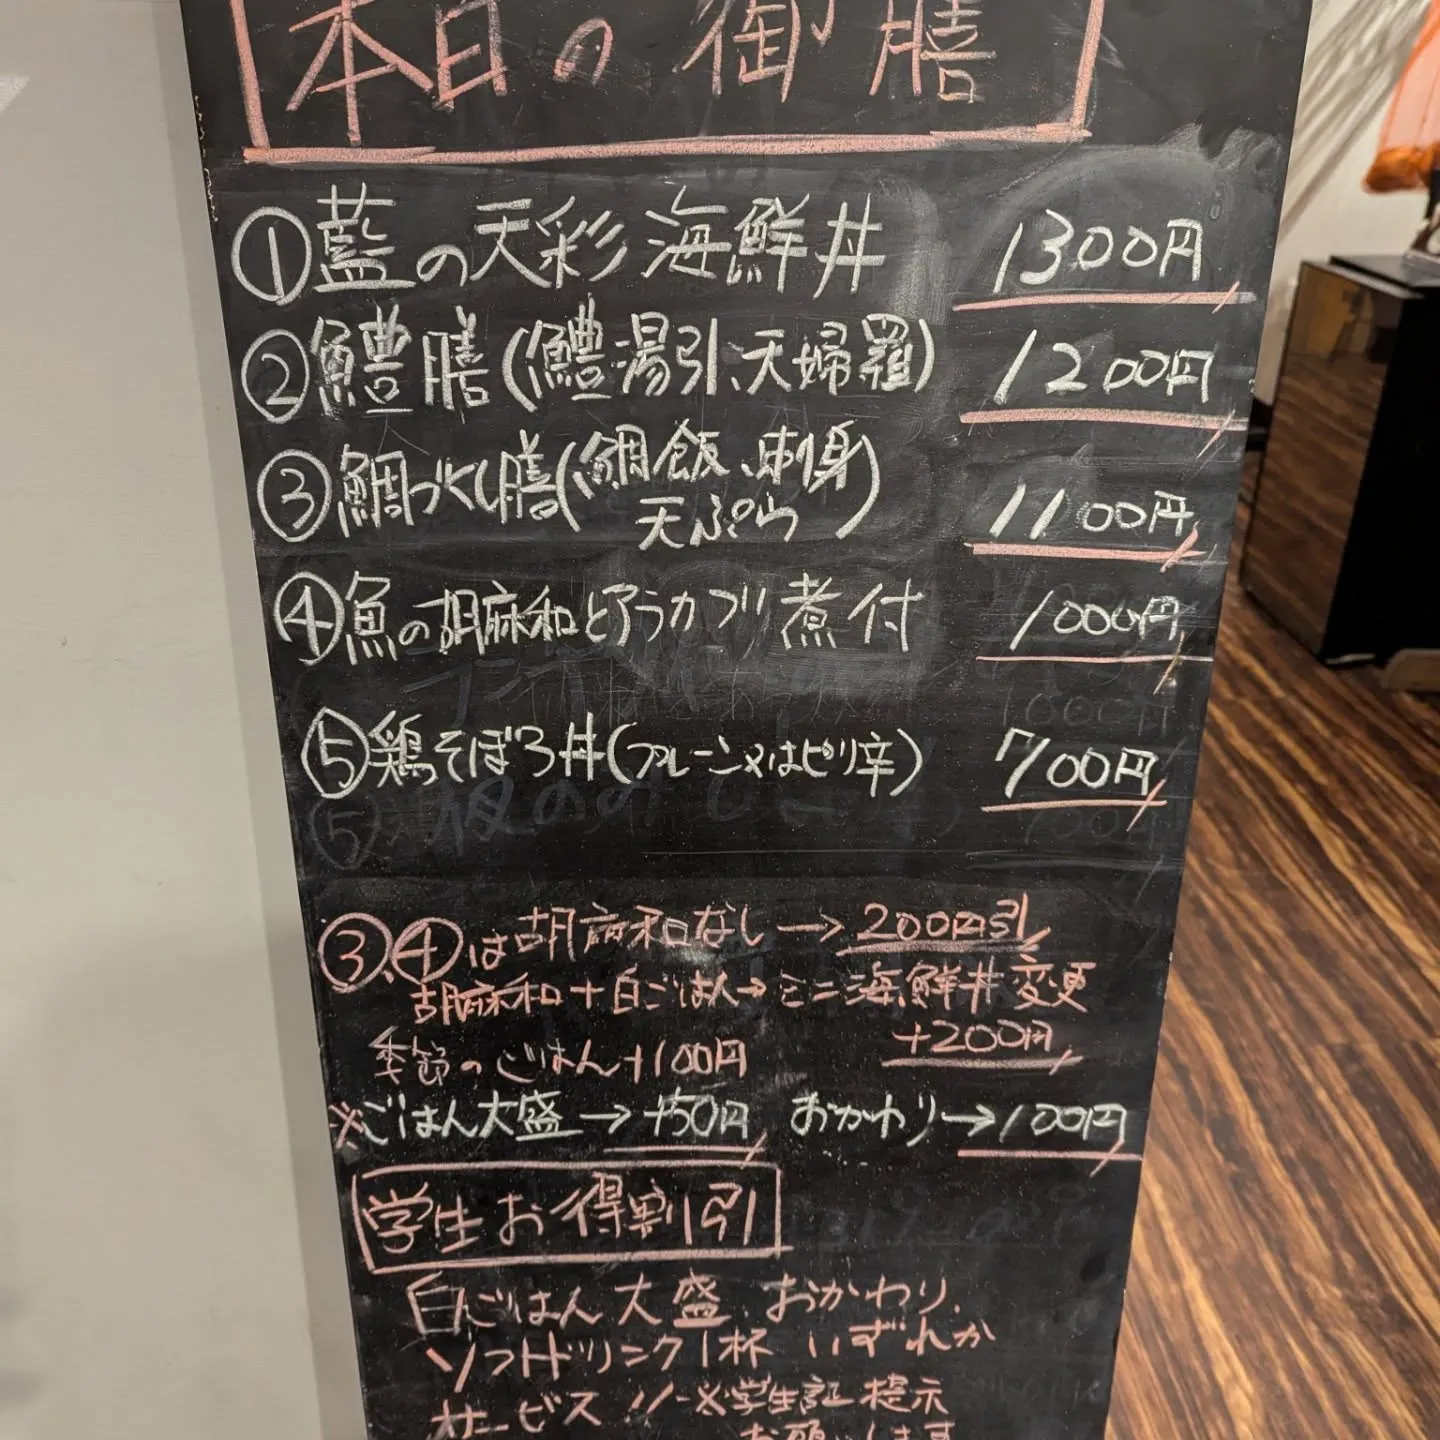 本日の御膳
①藍の天彩海鮮丼 1300円
②鱧膳(鱧湯引、天婦羅) 1200円
③鯛づくし膳(鯛飯、刺身 天ぷら) 1100円
④魚の胡麻和とアラカブ煮付 1000円
⑤鶏そぼろ丼(プレーン又はピリ辛) 700円
③、④は胡麻和なし→200円引
胡麻和+白ごはん→ミニ海鮮丼変更
+200円
季節のごはん+100円
※ごはん大盛→+50円 おかわり→100円
学生お得割引
白ごはん大盛、おかわり、
ソフトドリンク1杯 いずれか
サービス!!※学生証提示
お願いします